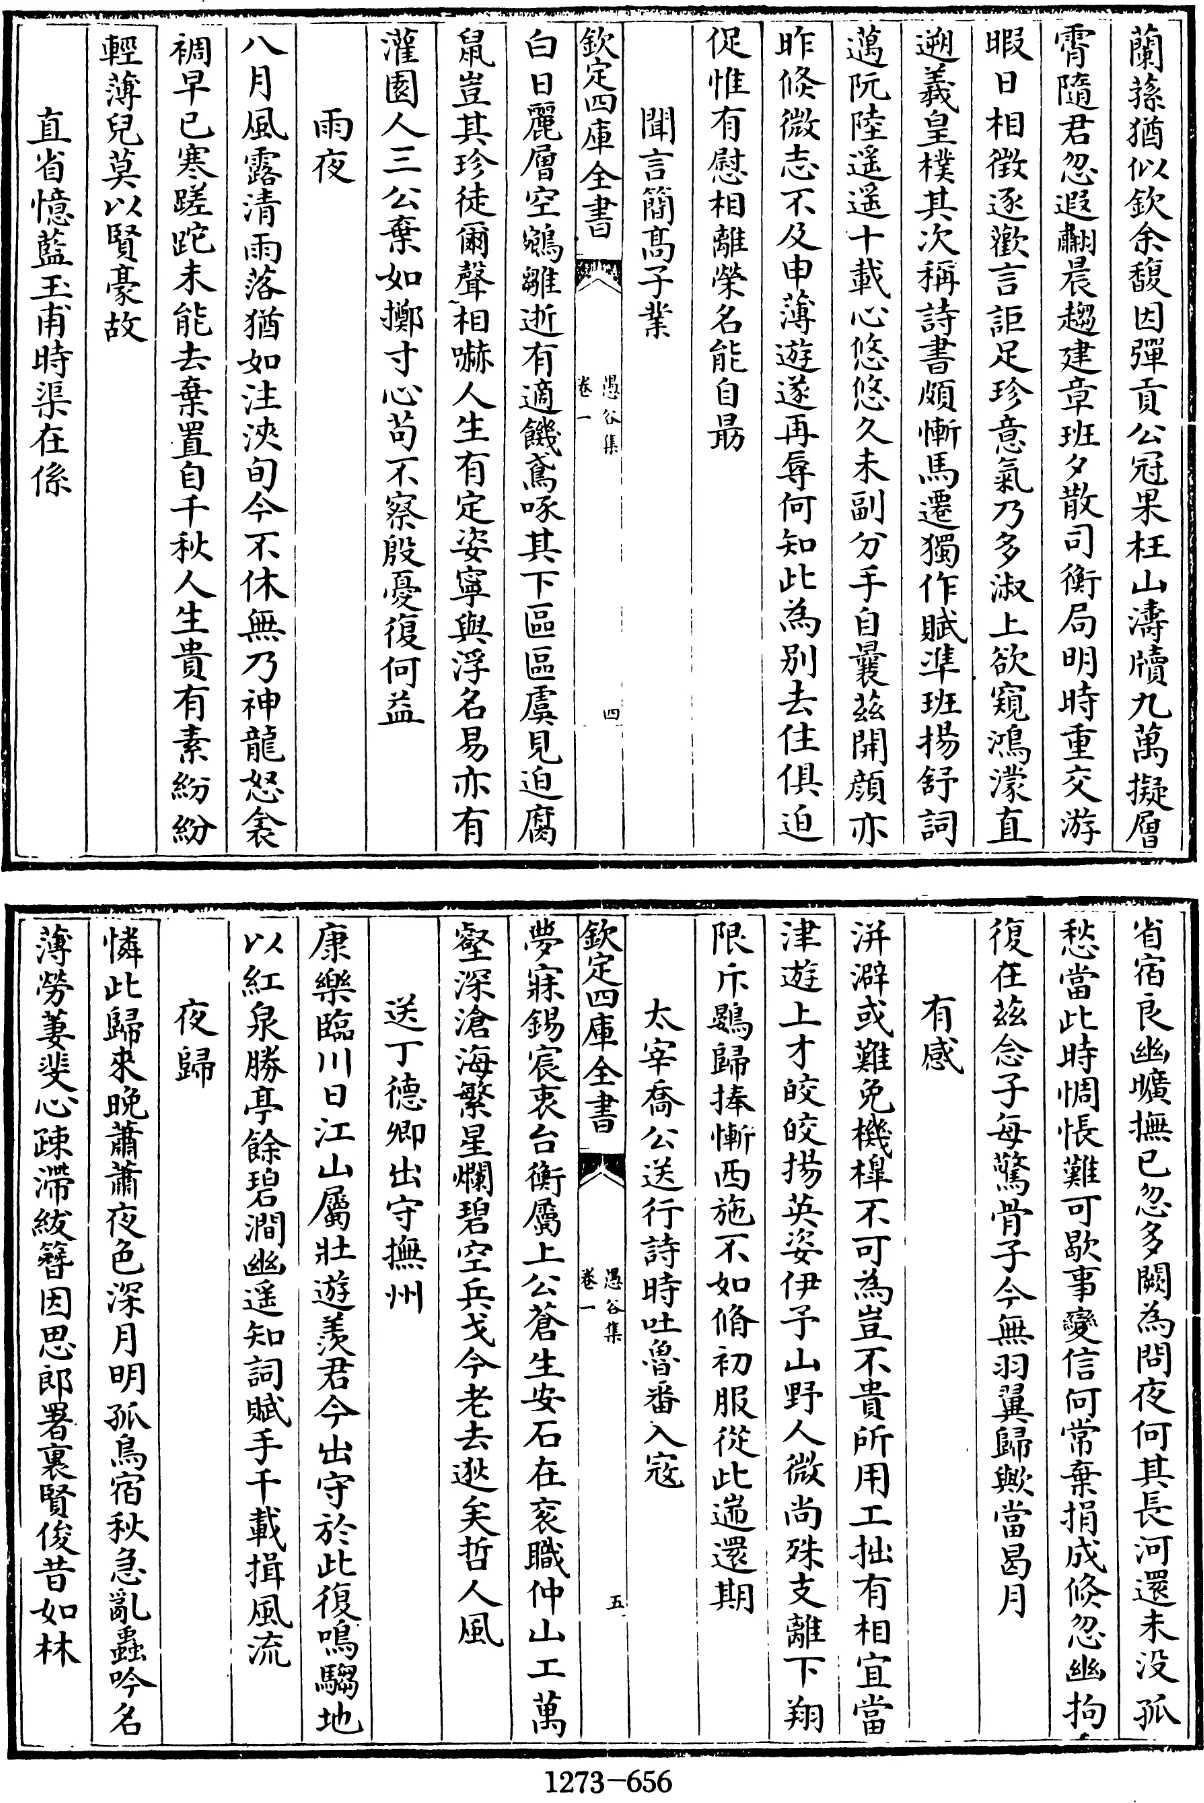 蘭蓀猶似欽余馥因彈貢公冠果枉山濤牘九萬擬層
霄隨君忽遐翽晨趨建章班夕散司衡局明時重交游
暇日相徵逐歡言詎足珍意氣乃多淑上欲窺鴻濛直
遡羲皇樸其次稱詩書頗慚馬遷獨作賦凖班揚舒詞
薖阮陸遥遥十載心悠悠久未副分手自曩茲開顔亦
昨倏微志不及申薄遊遂再辱何知此為别去住俱迫
促惟有慰相離榮名能自勗
聞言簡髙子業
欽定四庫全書
愚谷集
卷一
四
白日麗層空鵷雛逝有適饑鳶啄其下區區虞見迫腐
鼠豈其珍徒爾聲相嚇人生有定姿寧與浮名易亦有
灌園人三公棄如擲寸心苟不察殷憂復何益
雨夜
八月風露清雨落猶如注浹旬今不休無乃神龍怒衾
裯早已寒蹉跎未能去棄置自千秋人生貴有素紛紛
輕薄兒莫以賢豪故
直省憶藍玉甫時渠在係
省宿良幽曠撫已忽多闕為問夜何其長河還未没孤
愁當此時惆悵難可歇事變信何常棄捐成倏忽幽拘
復在茲念子每驚骨子今無羽翼歸歟當曷月
有感
洴澼或難免機橰不可為豈不貴所用工拙有相宜當
津遊上才皎皎揚英姿伊予山野人微尚殊支離下翔
限斥鷃歸捧慚西施不如脩初服從此遄還期
太宰喬公送行詩時吐魯番入寇
欽定四庫全書
愚谷集
卷一
五
夢寐錫宸衷台衡屬上公蒼生安石在衮職仲山工萬
壑深滄海繁星爛碧空兵戈今老去逖矣哲人風
送丁德卿出守撫州
康樂臨川日江山屬壯遊羨君今出守於此復鳴騶地
以紅泉勝亭餘碧澗幽遥知詞賦手千載揖風流
夜歸
憐此歸來晚蕭蕭夜色深月明孤鳥宿秋急亂蟲吟名
薄勞萋斐心疎滯紱簪因思郎署裏賢俊昔如林
1273-656